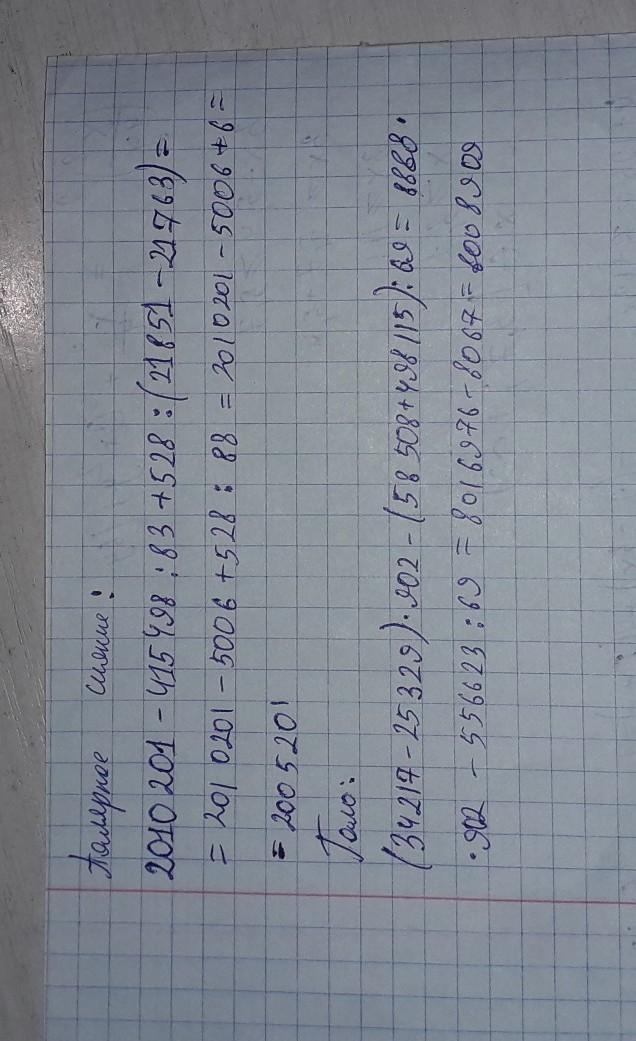 Полярное сияние:
2010201-415498:83+528:(21851-21763)=
=2010201-5006+528:88=2010201-5006+6=
=2005201
Гало:
(34217-25329)·902-(58508+498115):69=8888·
·902-556623:69=8016976-8067=8008909